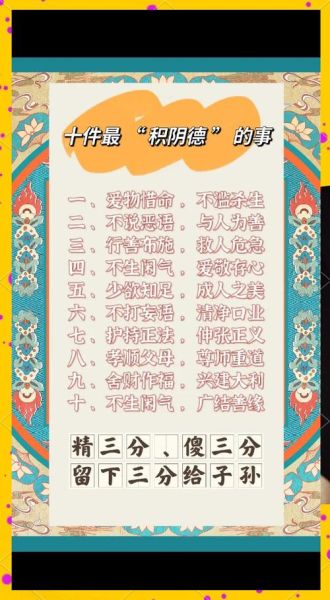 十件最 “积阴德” 的事
一、爱物惜命，不滥杀生
二、不说恶语，与人为善
三、行善布施，救人危急
四、不生闲气，爱敬存心
五、少欲知足，成人之美
六、不打妄语，清净口业
七、护持正法，伸张正义
八、孝顺父母，尊师重道
九、舍财作福，兴建大利
十、不生闲气，广结善缘
精三分、傻三分
留下三分给子孙